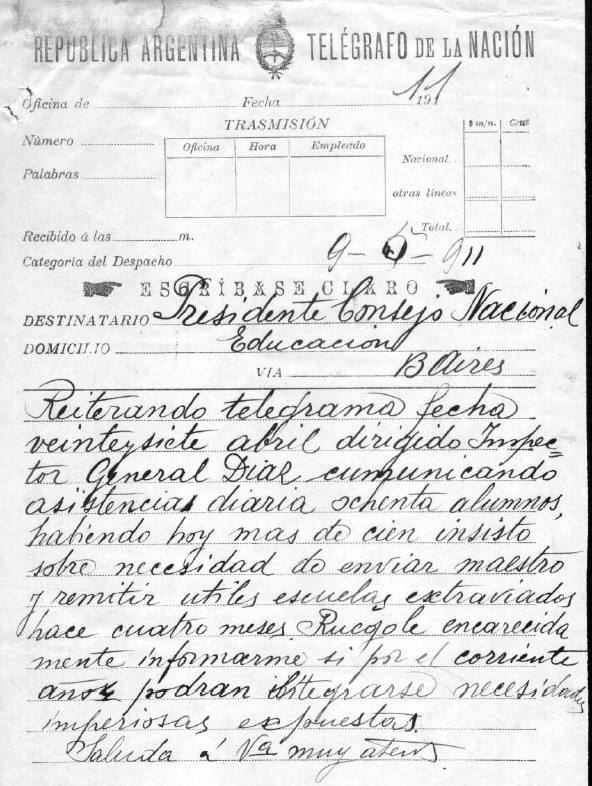 REPÚBLICA ARGENTINA TELÉGRAFO DE LA NACIÓN
Oficina de Fecha 191
11
TRASMISIÓN
$ m/n. Cent
Número
Oficina Hora Empleado
Nacional
Palabras
otras líneas
Total
Recibido á las m.
Categoria del Despacho 9-5-911
ESCRÍBASE CLARO
DESTINATARIO Presidente Consejo Nacional
DOMICILIO Educacion
VIA B Aires
Reiterando telegrama fecha
veinteysiete abril dirigido Inspec=
tor General Diaz cumunicando
asistencia diaria ochenta alumnos,
habiendo hoy mas de cien insisto
sobre necesidad de enviar maestro
y remitir utiles escuelas extraviados
hace cuatro meses. Ruegole encarecida
mente informarme si por el corriente
año podran integrarse necesidades
imperiosas expuestas.
Saluda á Va muy atens